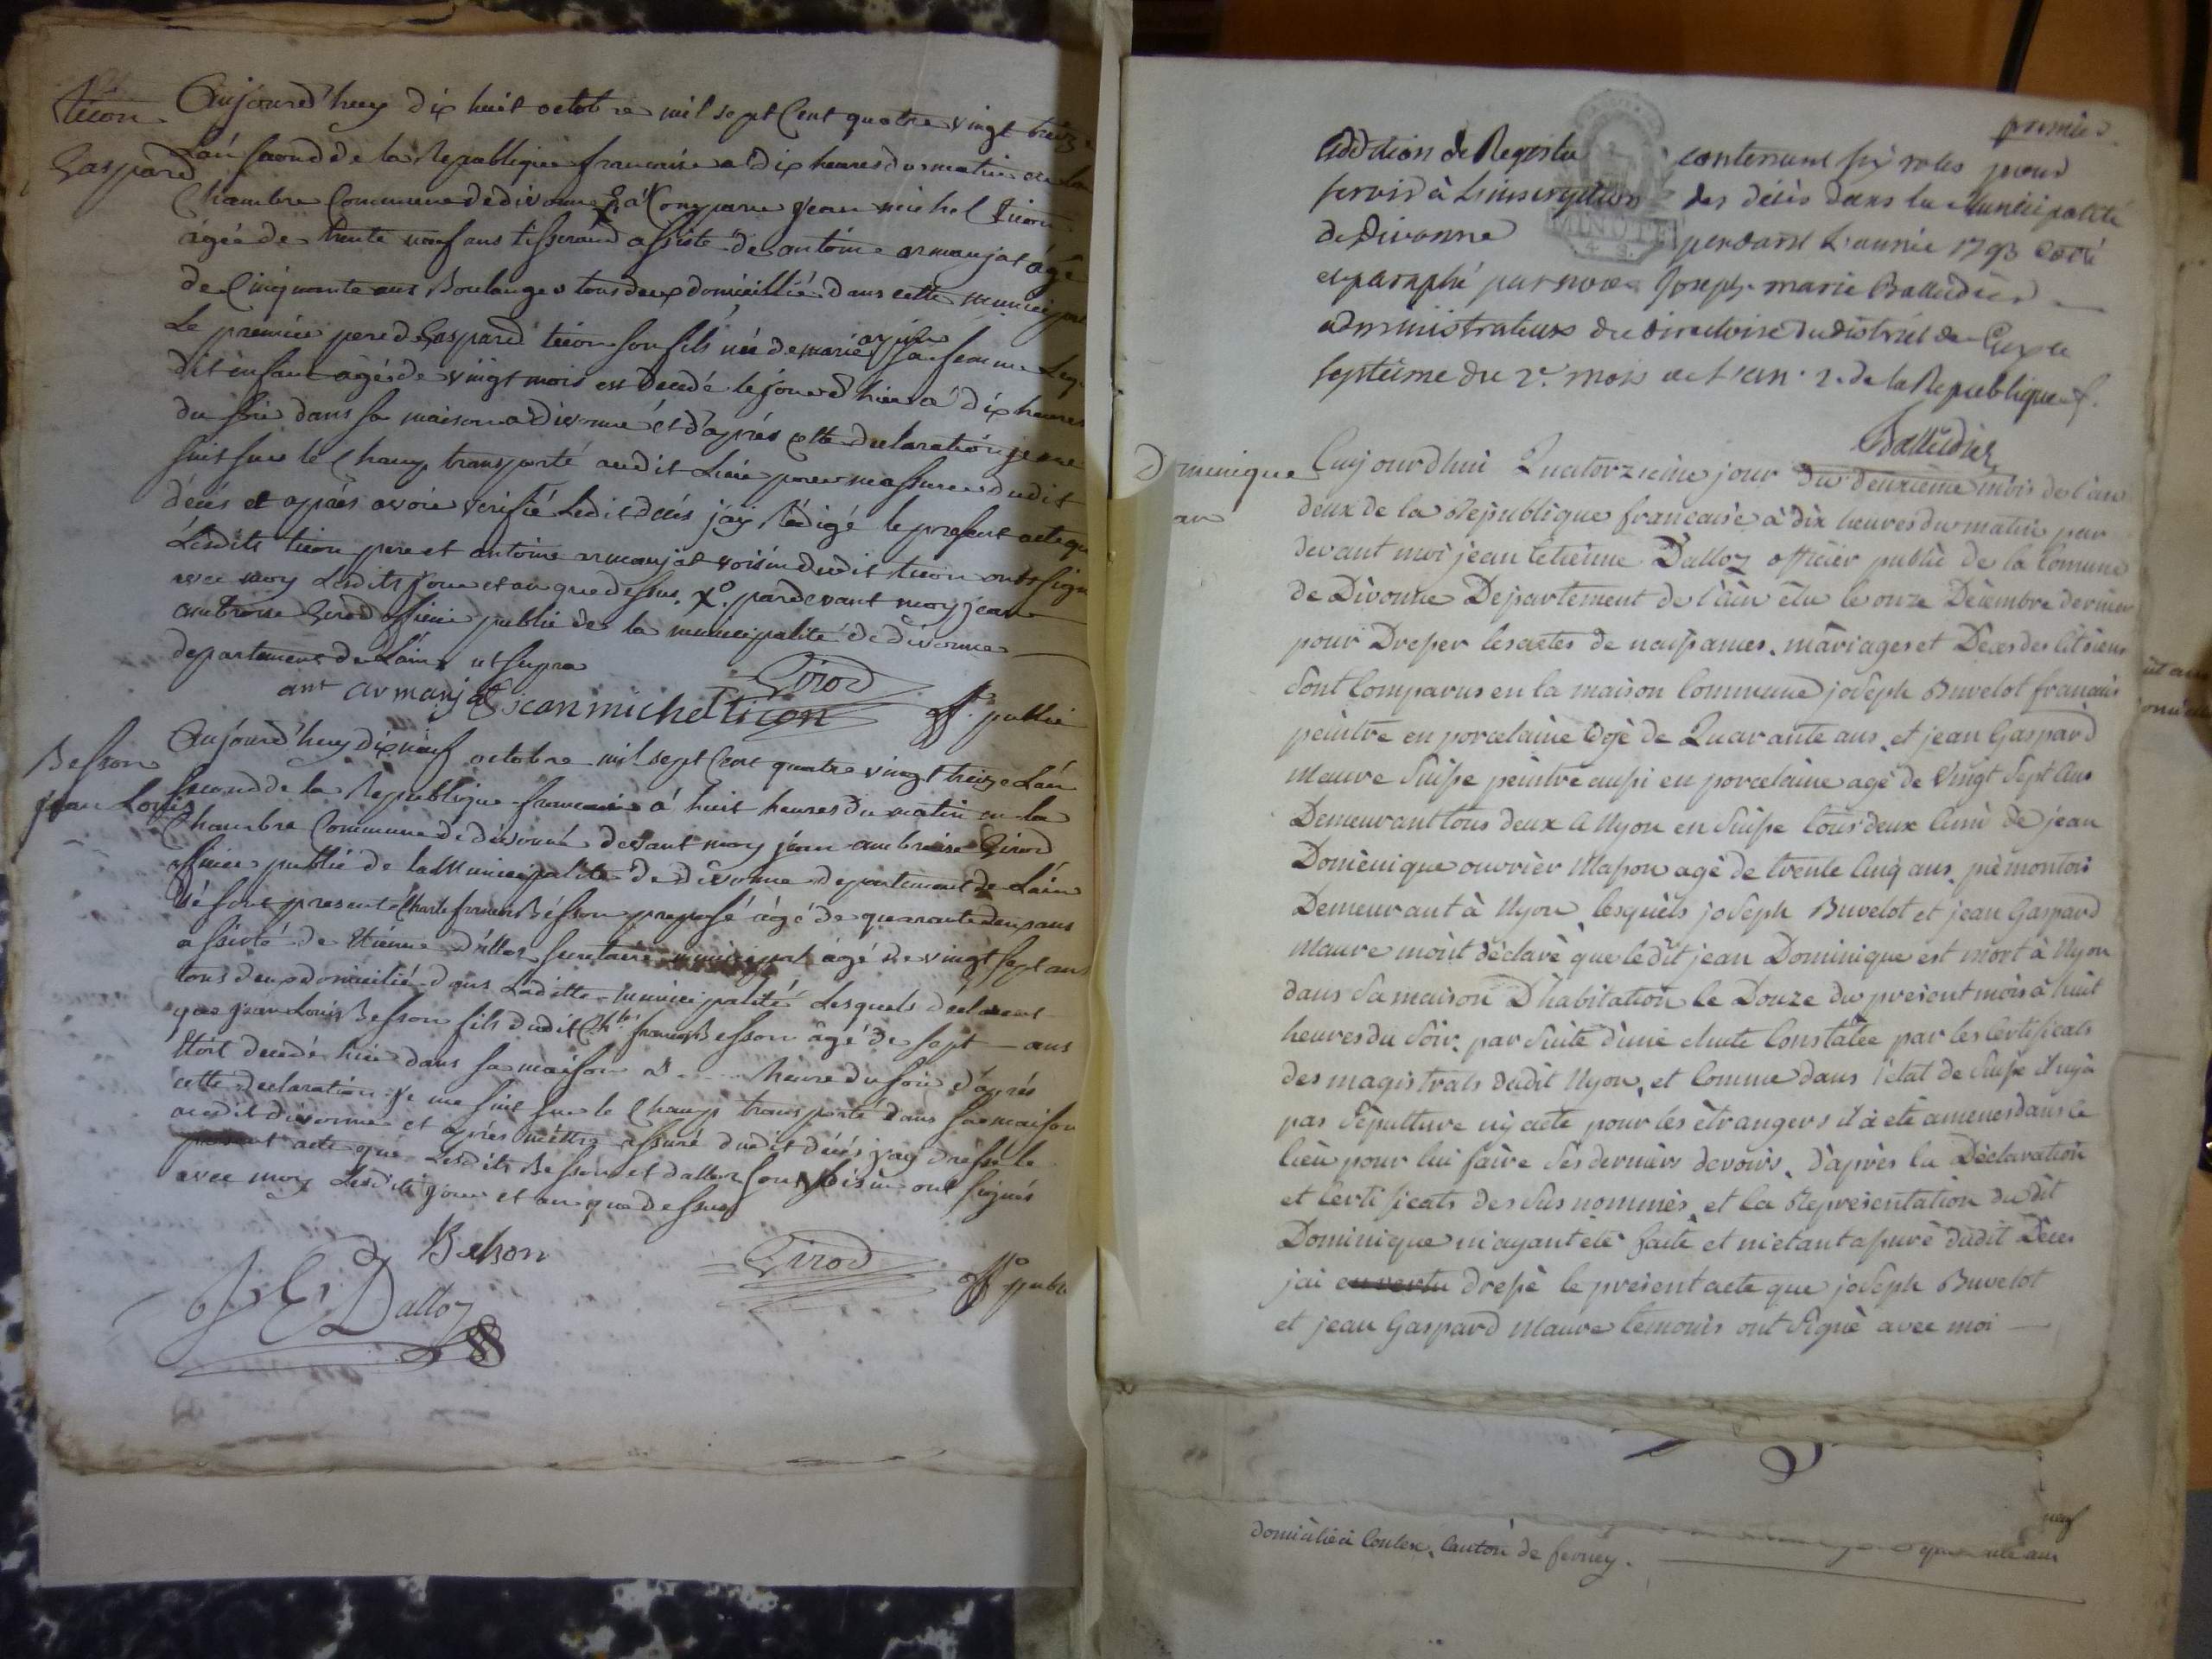 Ticon
Gaspard
Aujourd'huy dix huit octobre mil sept Cent quatre vingt treize
L'an second de la Republique francaise a dix heures du matin en la
Chambre Commune de divonne X a Comparu jean michel ticon
âgée de trente neuf ans tisserand assisté de antoine armanjat âgé
de Cinquante ans Boulanger tous deux domicillié dans cette municipa
Le premier pere de Gaspard ticon son fils née de marie sa femme Leq
dit enfant âgée de vingt mois est decedé le jour d'hier a dix heures
du soir dans sa maison a divonne et d'aprés cette declaration je me
suis sur le Champ transporté audit Lieu pour massurer dudit
décés et aprés avoir verifié Ledit décés j'ay rédigé le present acte que
Lesdits ticon pere et antoine armanjat voisin dudit ticon ont signé
avec moy Lesdits jour et an que dessus. Xo. pardevant moy jean
ambroise Girod officier public de la municipalité de divonne
departement de Lain ut supra
ant armanjat jean michel ticon Girod off. public
Besson
jean Louis
Aujourd'huy dix neuf octobre mil sept Cent quatre vingt treize Lan
second de la Republique francaise a huit heures du matin en la
Chambre Commune de divonne devant moy jean ambroise Girod
officier public de la Municipalité de divonne departement de Lain
sé sont presenté Charle francois Bésson preposé âgé de quarante deux ans
assisté de Etienne dallos secretaire municipal âgé de vingt sept ans
tous deux domicilié dans Laditte municipalité Lesquels déclarent
que jean Louis Besson fils dudit Chle francois Besson âgé de sept ans
étoit decedé hier dans sa maison a .... heure du soir d'aprés
cette declaration je me suis sur le Champ transporté dans sa maison
audit divonne et aprés m'être assuré dudit décés j'ay dressé le
present acte que Lesdits Besson et dalloz son voisin ont signés
avec moy Lesdits jour et an que dessus
Besson Girod offo publ
J. E. Dalloz
premier
Addition de Registre contenant six roles pour
servir à l'inscription des décès dans la Municipalité
de Divonne pendant l'année 1793 Coté
et paraphé par nous Joseph marie Balleidier
administrateur du directoire du district de Gex le
septième du 2e. mois de l'an 2. de la Republique f.
Balleidier
MINUTE
4 S.
Dominique
Aujourdhui Quatorzieme jour du deuxieme mois de l'an
deux de la Republique francaise à dix heures du matin par
devant moi jean Etiènne Dalloz officier public de la Comune
de Divonne Departement de l'ain élu le onze Décembre dernier
pour Dresser les actes de naissances, mariages et Décès des Citoiens
Sont Comparus en la maison Commune joseph Buvelot francais
peintre en porcelaine âgè de Quarante ans, et jean Gaspard
Mauve Suisse peintre aussi en porcelaine agé de vingt sept ans
Demeurant tous deux a Nyon en Suisse tous deux amis de jean
Domènique ouvrier Masson agé de trente Cinq ans, pièmontois
Demeurant à Nyon lesquels joseph Buvelot et jean Gaspard
Mauve m'ont déclarè que ledit jean Dominique est mort à Nyon
dans sa maison D'habitation le Douze du présent mois à huit
heures du Soir, par Suite d'une chute Constatée par les certificats
des magistrats dudit Nyon, et Comme dans l'état de Suisse il n'y à
pas Sépulture ni acte pour les étrangers il à eté amenes dans ce
lieu pour lui faire Ses derniers devoirs, D'après la Déclaration
et certificats des Sus nommés, et la Représentation dudit
Dominique m'ayant été faite et m'etant assuré dudit Décès
jai en vertu dressè le présent acte que joseph Buvelot
et jean Gaspard Mauve témoins ont Signè avec moi
domicilié à Coulex, Canton de ferney.